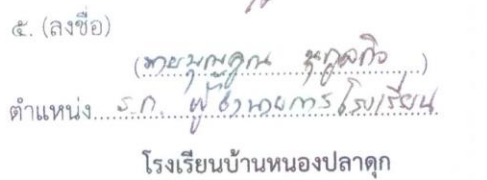 ๕. (ลงชื่อ)
(นายบุญคูณ นุกูลกิจ)
ตำแหน่ง ร.ก. ผู้อำนวยการโรงเรียน
โรงเรียนบ้านหนองปลาดุก